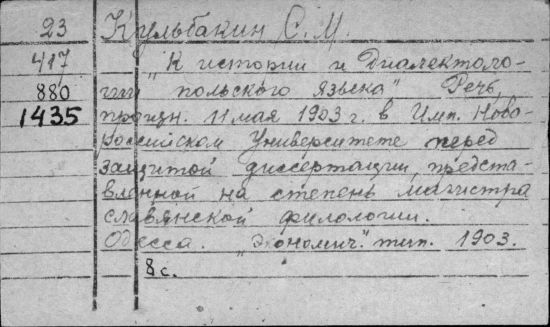 23 Кульбакин С. М.
417 „К истории и Диалектоло-
880 гии польского языка" Речь,
1435 произн. 11 мая 1903 г. в Имп. Ново-
российском Университете перед
защитой диссертации, предста-
вленной на степень магистра
славянской филологии.
Одесса. „Экономич." тип. 1903.
8 с.